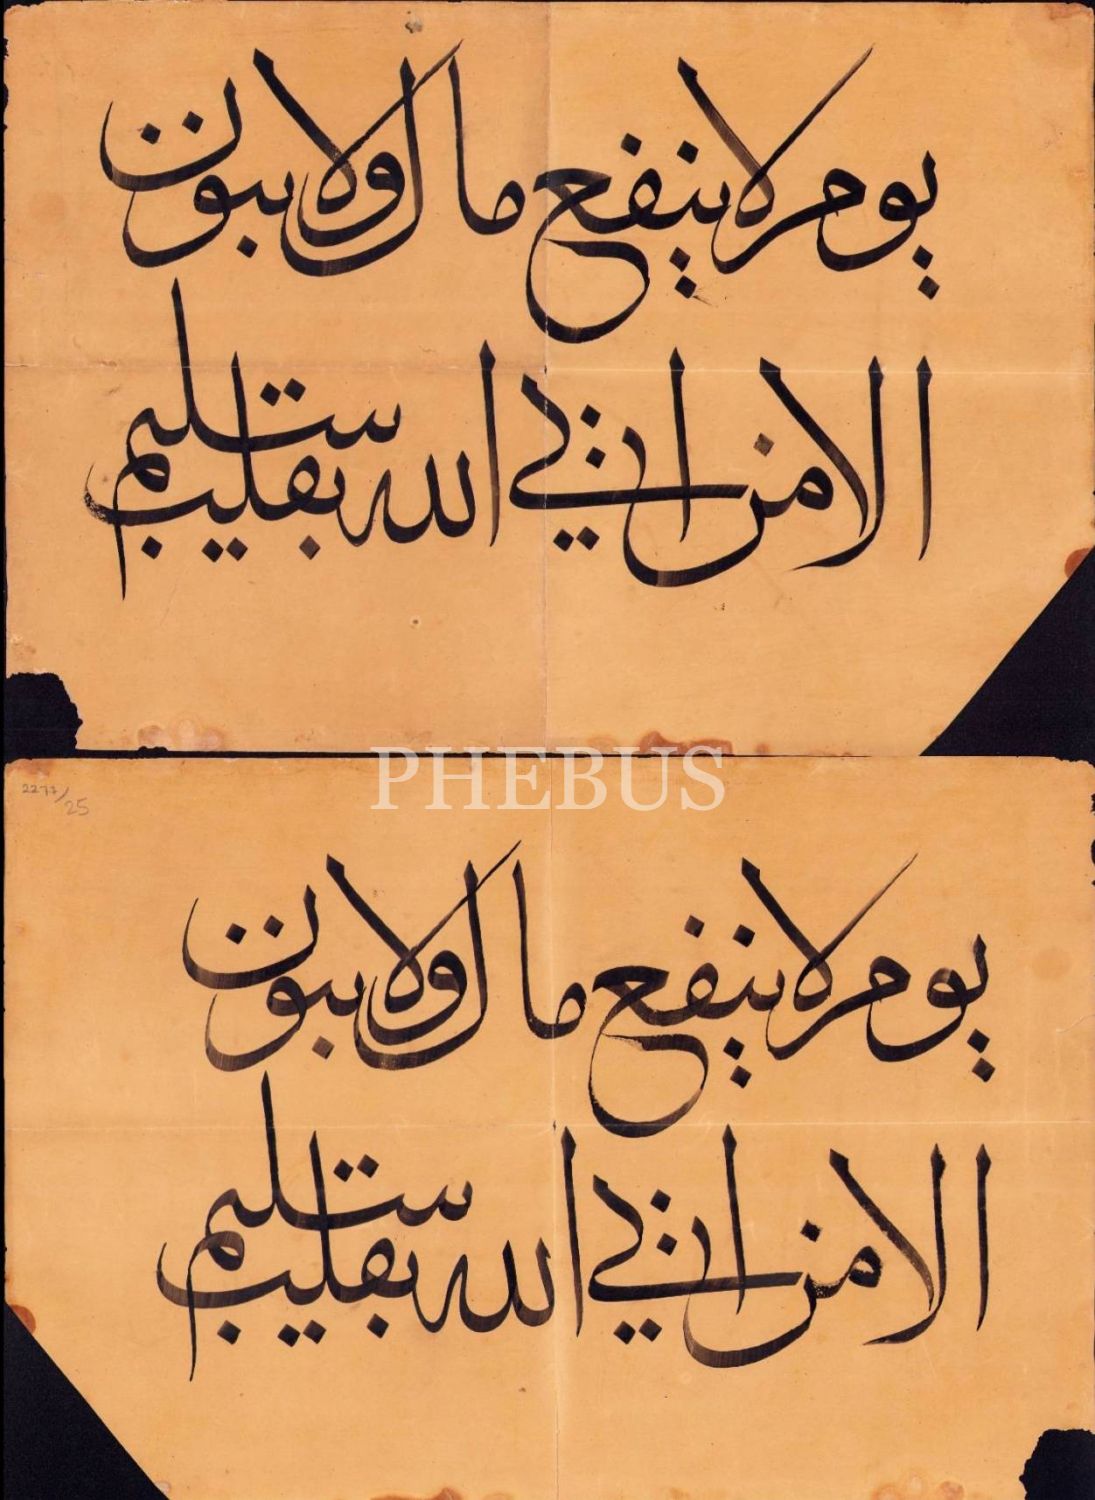 يوم لا ينفع مال ولا بنون
الا من اتى الله بقلب سليم
PHEBUS
2277/25
يوم لا ينفع مال ولا بنون
الا من اتى الله بقلب سليم